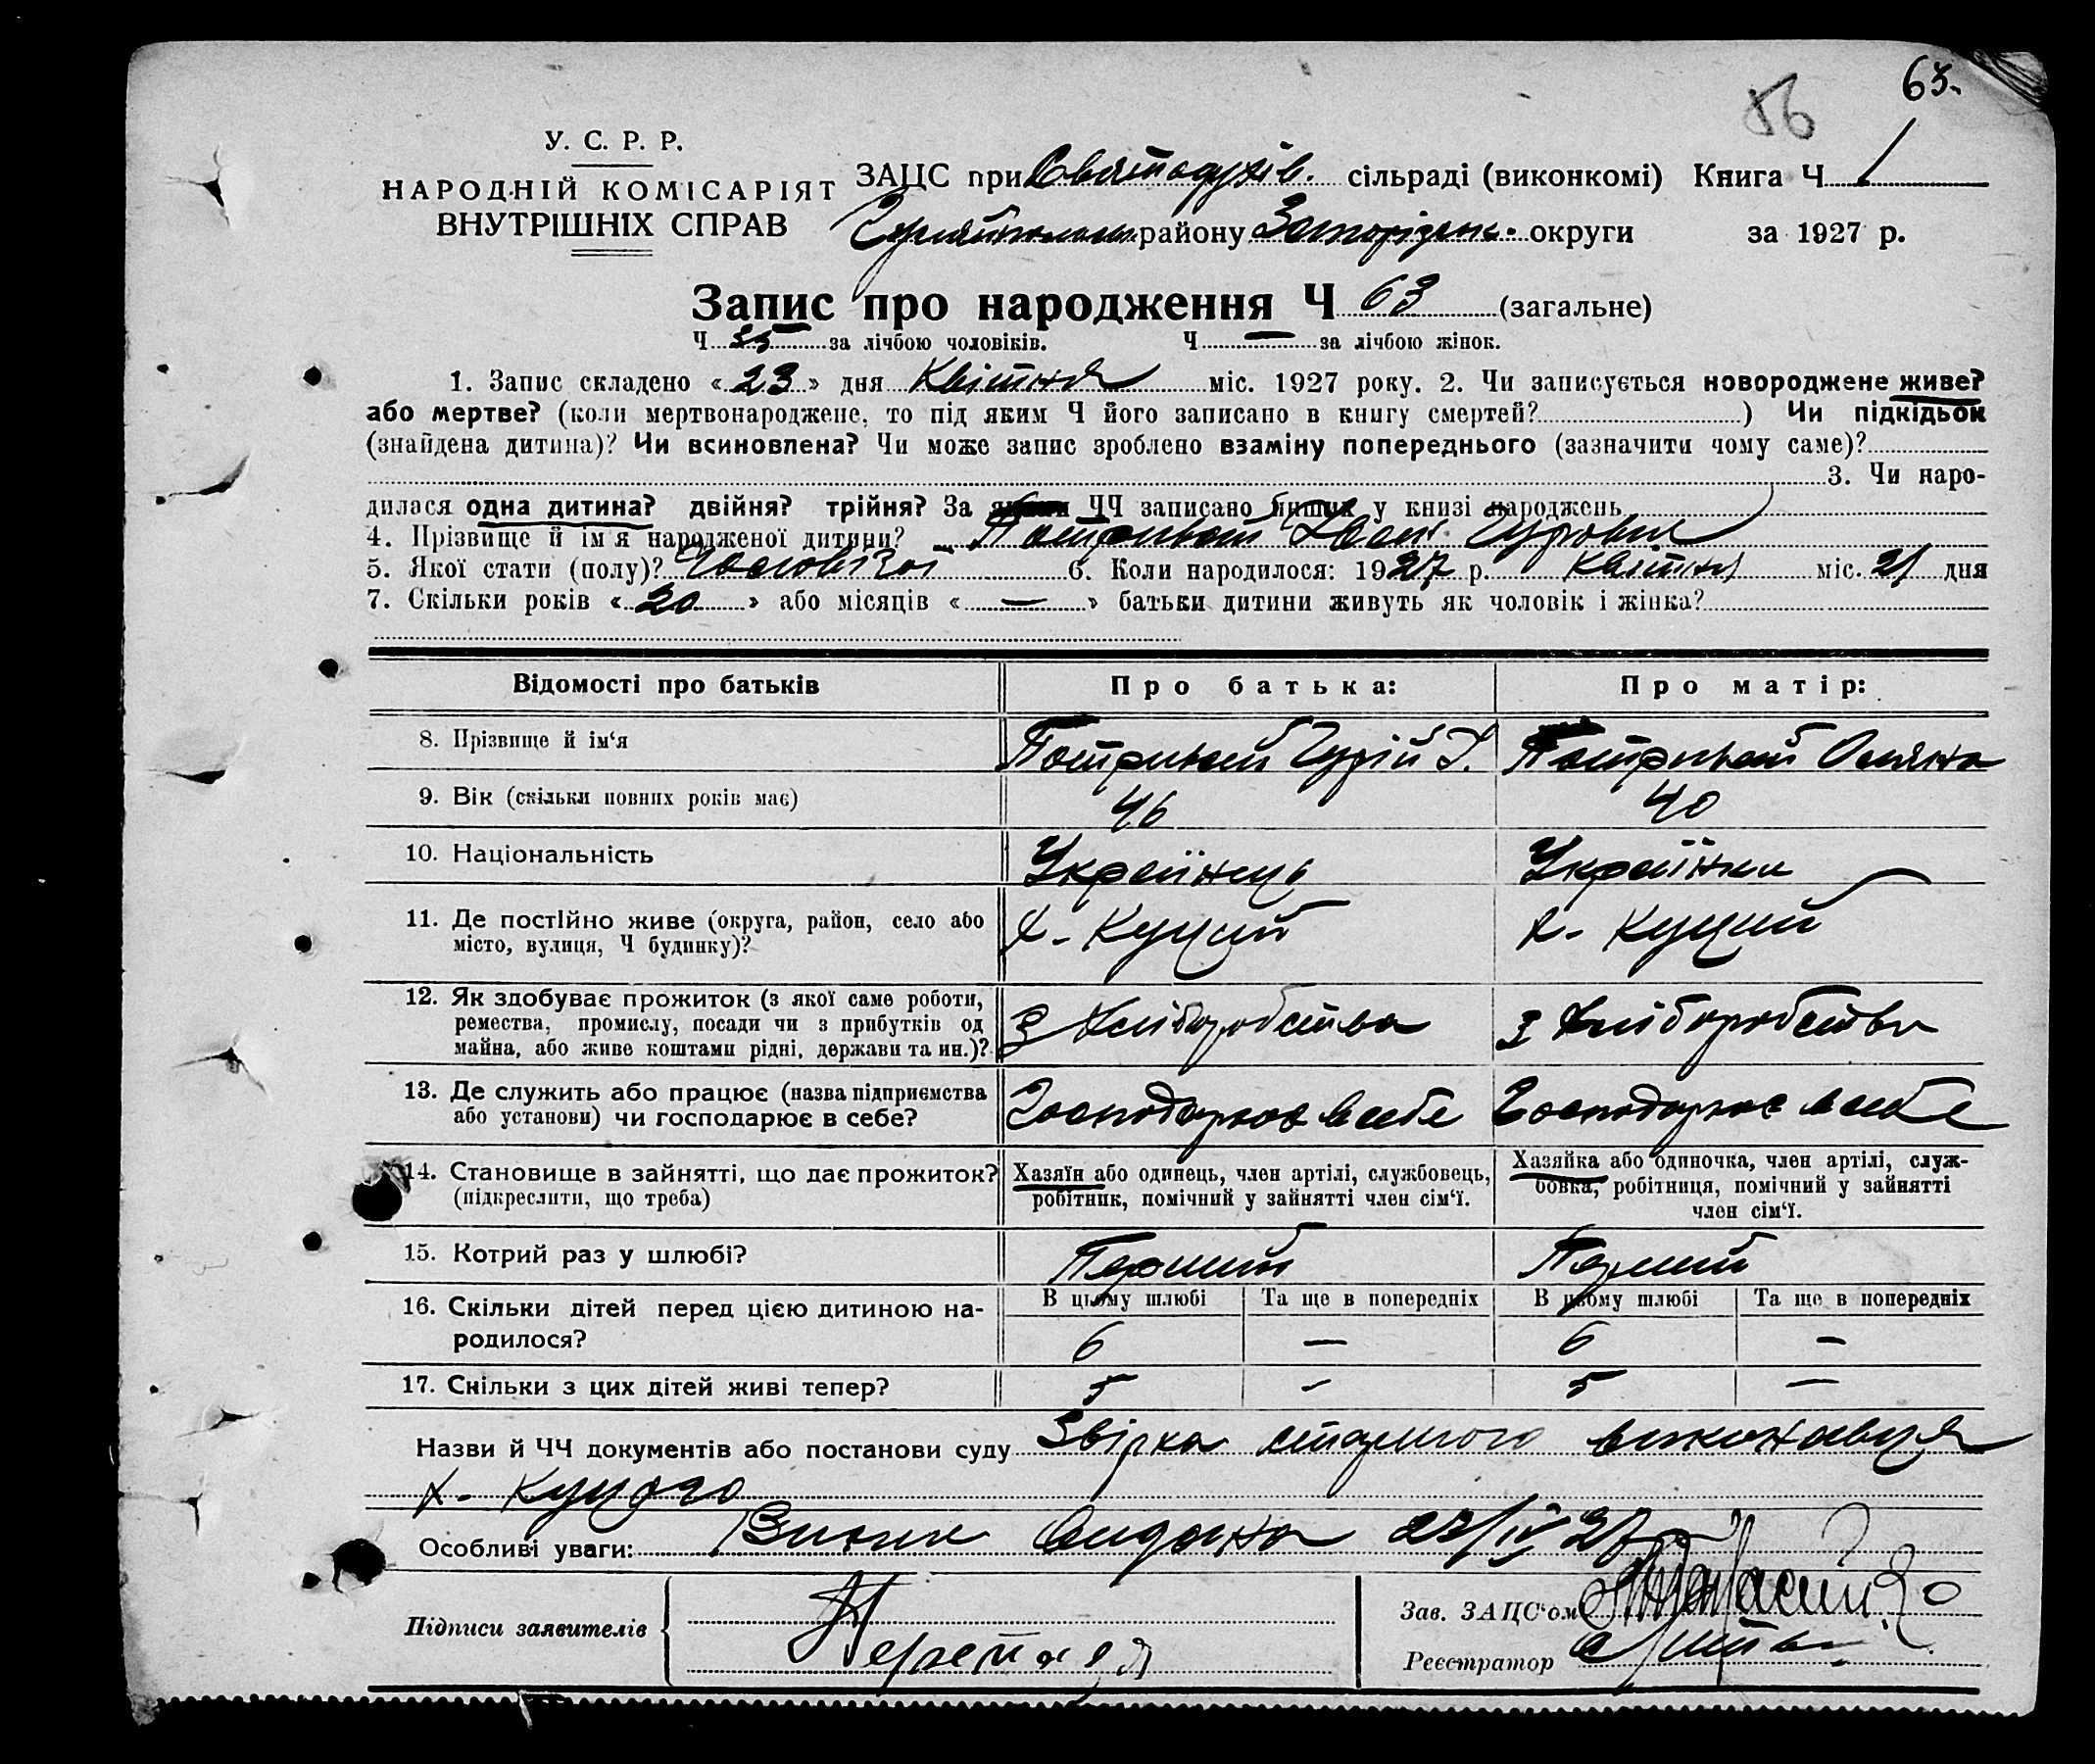 65.
56
У. С. Р. Р.
НАРОДНІЙ КОМІСАРІЯТ
ВНУТРІШНІХ СПРАВ
ЗАЦС при Святодухів. сільраді (виконкомі) Книга Ч 1
району Запоріжськ. округи за 1927 р.
Запис про народження Ч 63 (загальне)
Ч 35 за лічбою чоловіків. Ч — за лічбою жінок.
1. Запис складено « 23 » дня Квітня міс. 1927 року. 2. Чи записується новороджене живе?
або мертве? (коли мертвонароджене, то під яким Ч його записано в книгу смертей? ) Чи підкідьок
(знайдена дитина)? Чи всиновлена? Чи може запис зроблено взаміну попереднього (зазначити чому саме)?
3. Чи наро-
дилася одна дитина? двійня? трійня? За яким ЧЧ записано інших у книзі народжень
4. Прізвище й ім'я народженої дитини? Іван Гурович
5. Якої стати (полу)? Чоловічої 6. Коли народилося: 1927 р. квітня міс. 21 дня
7. Скільки років « 20 » або місяців « — » батьки дитини живуть як чоловік і жінка?
Відомості про батьків Про батька: Про матір:
8. Прізвище й ім'я Гурій І.
9. Вік (скільки повних років має) 46 40
10. Національність Українець Українка
11. Де постійно живе (округа, район, село або
місто, вулиця, Ч будинку)? х. Куций х. Куций
12. Як здобуває прожиток (з якої саме роботи,
ремества, промислу, посади чи з прибутків од
майна, або живе коштами рідні, держави та ин.)? З хліборобства З хліборобства
13. Де служить або працює (назва підприємства
або установи) чи господарює в себе? Господарює в себе Господарює в себе
14. Становище в зайнятті, що дає прожиток?
(підкреслити, що треба)
Хазяїн або одинець, член артілі, службовець,
робітник, помічний у зайнятті член сім'ї.
Хазяйка або одиночка, член артілі, служ-
бовка, робітниця, помічний у зайнятті
член сім'ї.
15. Котрий раз у шлюбі? Перший Перший
16. Скільки дітей перед цією дитиною на-
родилося?
В цьому шлюбі Та ще в попередніх В цьому шлюбі Та ще в попередніх
6 — 6 —
17. Скільки з цих дітей живі тепер? 5 — 5 —
Назви й ЧЧ документів або постанови суду Звірка виконавця
х. Куцого
Особливі уваги: видана 23/IV 27
Підписи заявителів
Зав. ЗАЦС'ом
Реєстратор